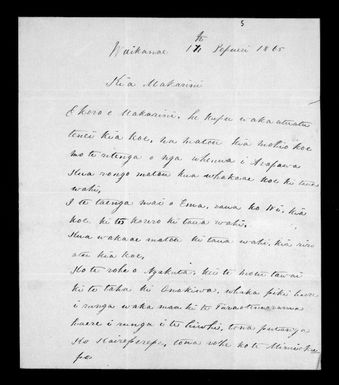 5
Waikanae 17th Tepuei 1865
Kia Makarini
E koro e Makarini, he kupu whakaatuatu
tenei kia koe, na matou kia mohio koe
mo te ritenga o nga whenua i Arapawa
Kua rongo matou kua whakaae koe ki taua
wahi,
I te taenga mai o Ema, raua ko Wi, kia
koe ki te korero ki taua wahi,
Kua wakaae matou ki taua wahi, kia riro
atu kia koe,
Ko te rohe o Ngakuta, kei te motu tawai
ki te taha ki Anakiwa, whaka piki haere
i runga
haere i runga i te hiwihi, tona putanga
Ko Kaireperepe, tona rohe ko te
pa